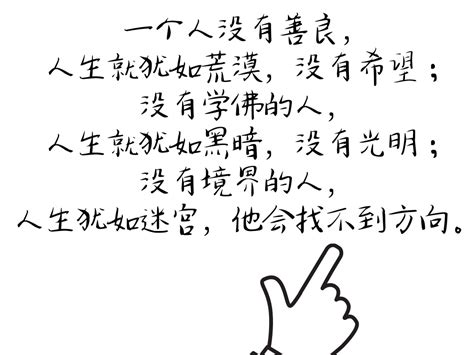 一个人没有善良，
人生就犹如荒漠，没有希望；
没有学佛的人，
人生就犹如黑暗，没有光明；
没有境界的人，
人生犹如迷宫，他会找不到方向。